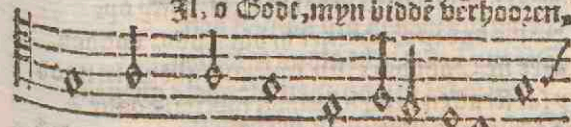 Il, o Godt, myn biddē verhooꝛen,